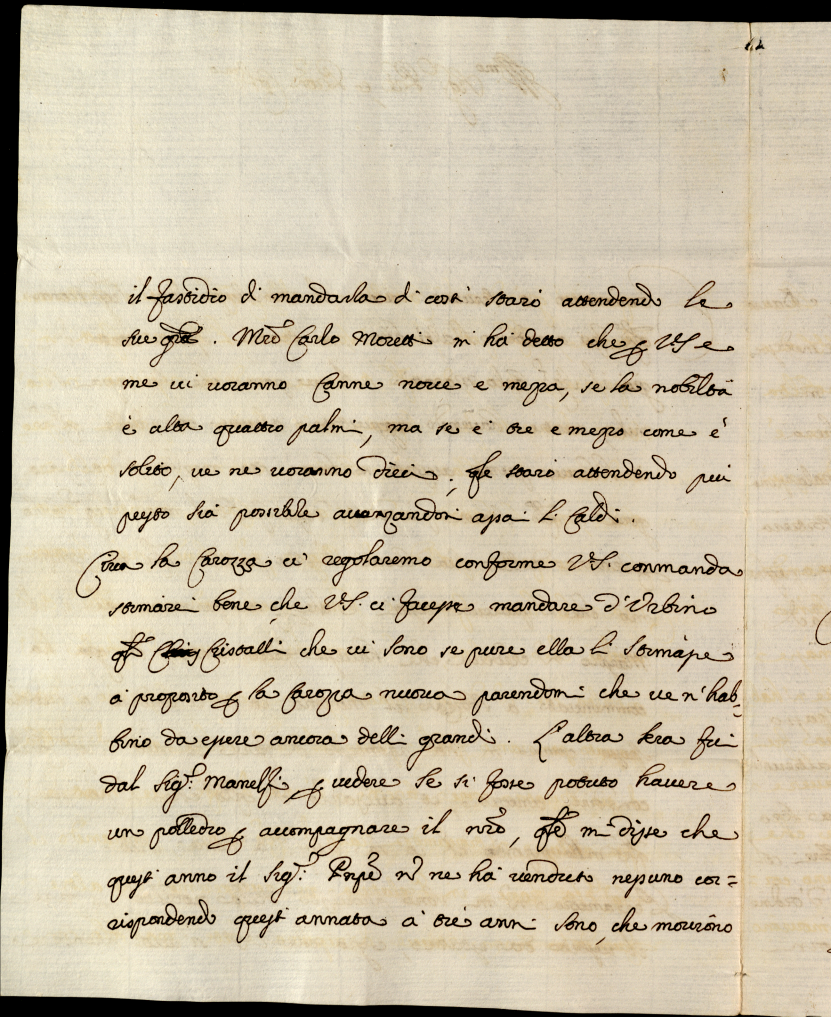 il fastidio di mandarla di costi starò attendendo le
sue gra͞e. Mro Carlo Moretti m'ha detto che p VS e
me vi voranno Canne nove e mezza, se la nobiltà
è alta quattro palmi, ma se è tre e mezzo come è
solito, ve ne voranno dieci; q͞le starò attendendo più
presto sia possibile avanzandosi assai li Caldi.
Circa la Carozza ci regolaremo conforme VS. commanda
stimarei bene, che VS. ci facesse mandare d'Urbino
Cristalli che vi sono se pure ella li stimasse
a proposito p la Carozza nuova parendomi che ve n'hab=
bino da essere ancora delli grandi. L'altra sera fui
dal Sigr. Manelfi, p vedere se si fosse potuto havere
un polledro p accompagnare il nro, q͞le mi disse che
quest'anno il Sigr. Pnpe nͦ ne ha venduto nessuno cor=
rispondendo quest'annata a trè anni sono, che morirono